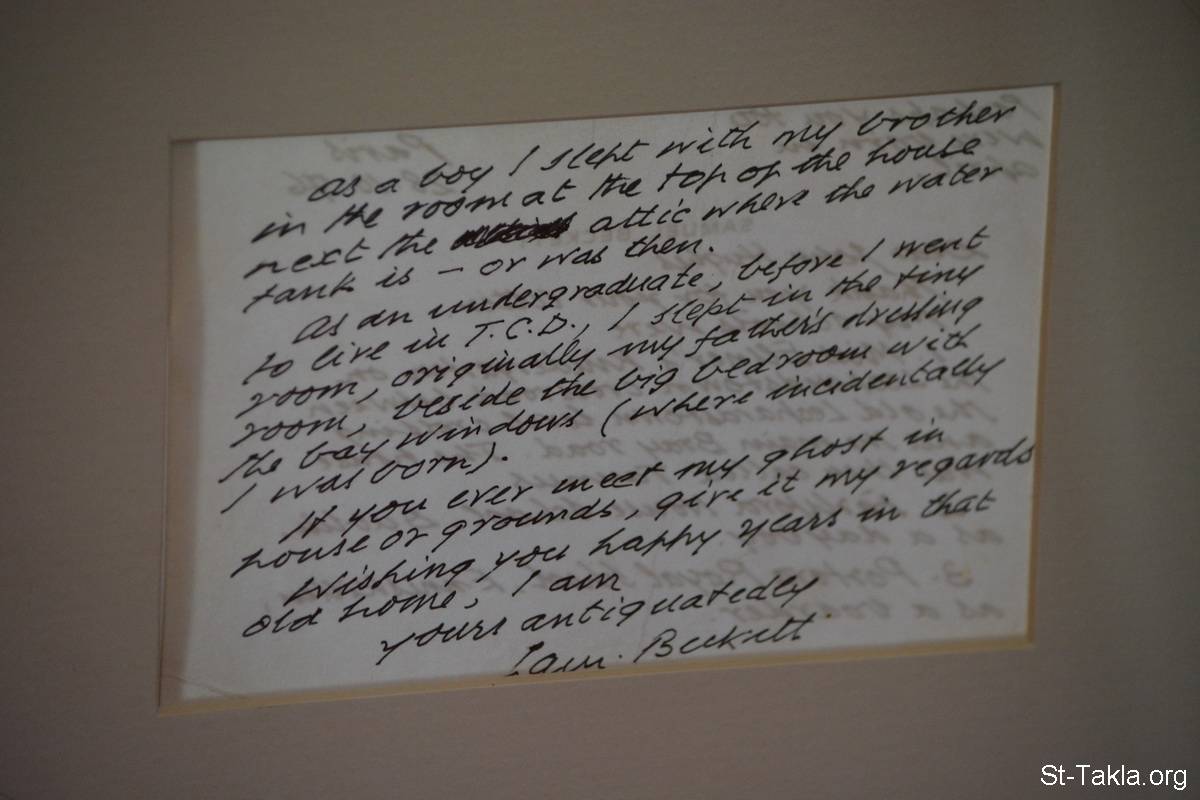 As a boy I slept with my brother
in the room at the top of the house
next the attic where the water
tank is – or was then.
As an undergraduate, before I went
to live in T.C.D., I slept in the tiny
room, originally my father's dressing
room, beside the big bedroom with
the bay windows (where incidentally
I was born).
If you ever meet my ghost in
house or grounds, give it my regards
Wishing you happy years in that
old home, I am
yours antiquatedly
Sam. Beckett
St-Takla.org